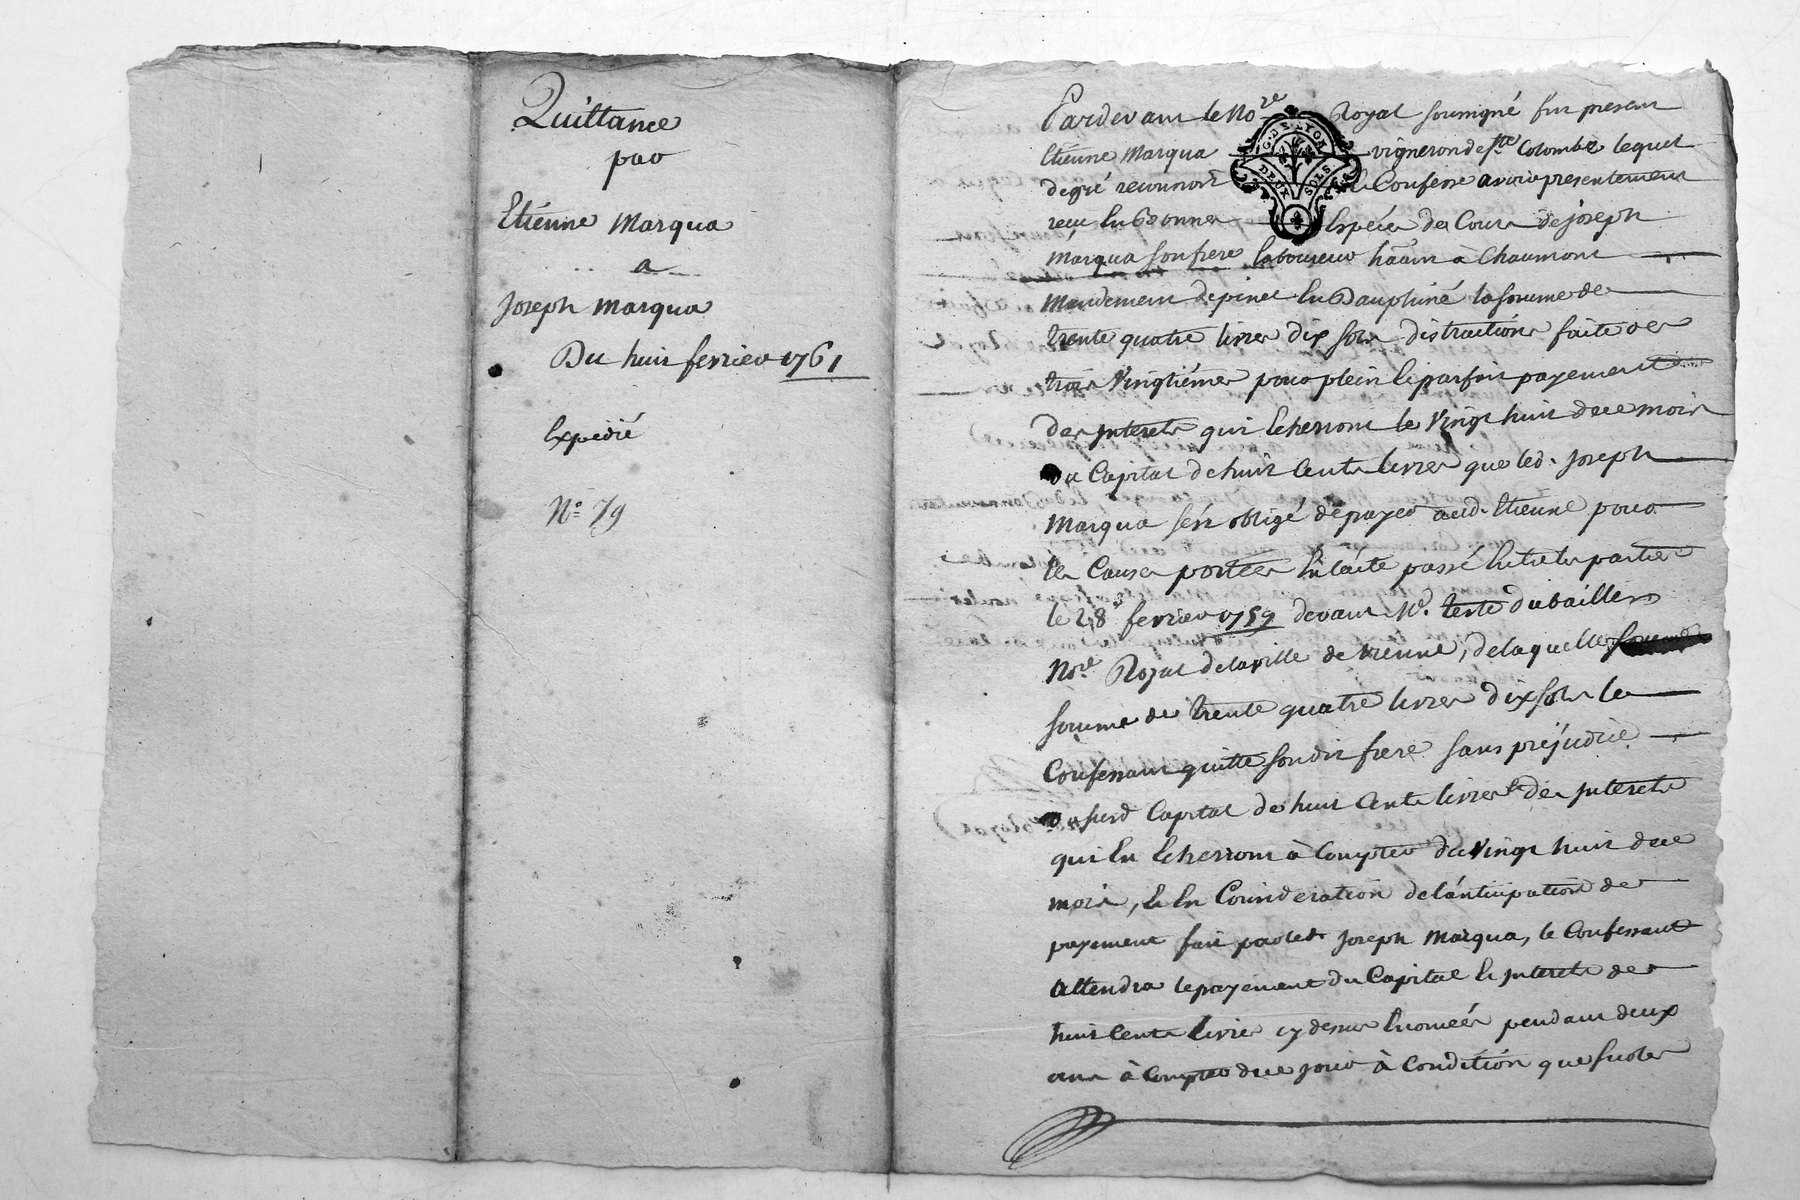 Quittance
par
Etienne Marqua
a
Joseph Marqua
Du huit fevrier 1761
Expedié
N.° 79
Pardevant le No.re Royal soussigné fut present
Etienne Marqua vigneron de Ste Colombe lequel
degré reconnoit & Confesse avoir presentement
recu En Bonnes Espéces de Cours de joseph
Marqua son frere laboureur hãant à Chaumont
Mandement depinet En Dauphiné la somme de
trente quatre livres dix sols distraction faite des
trois Vingtiémes pour plein & parfait payement
des jnterets qui Echerront le Vingt huit de ce mois
du Capital de huit Cents livres que led. joseph
Marqua s'est obligé de payer aud. Etienne pour
les Causes portées En l'acte passé Entre les parties
le 28e fevrier 1759 devant Me. teste dubailler
No.re Royal de la ville de vienne, de laquelle
somme de trente quatre livres dix sols le
Confessant quitte son dit frere sans préjudice
du susd Capital de huit Cents livres & des jnterets
qui En Echerront à Compter du Vingt huit de ce
mois, & En Consideration de l'anticipation de
payement fait par led joseph Marqua, le Confessant
attendra le payement du Capital & jnterets des
huit Cents livres cy dessus Enoncées pendant deux
ans à Compter de ce jour à Condition que sur les
G. DE LYON
DEUX SOLS